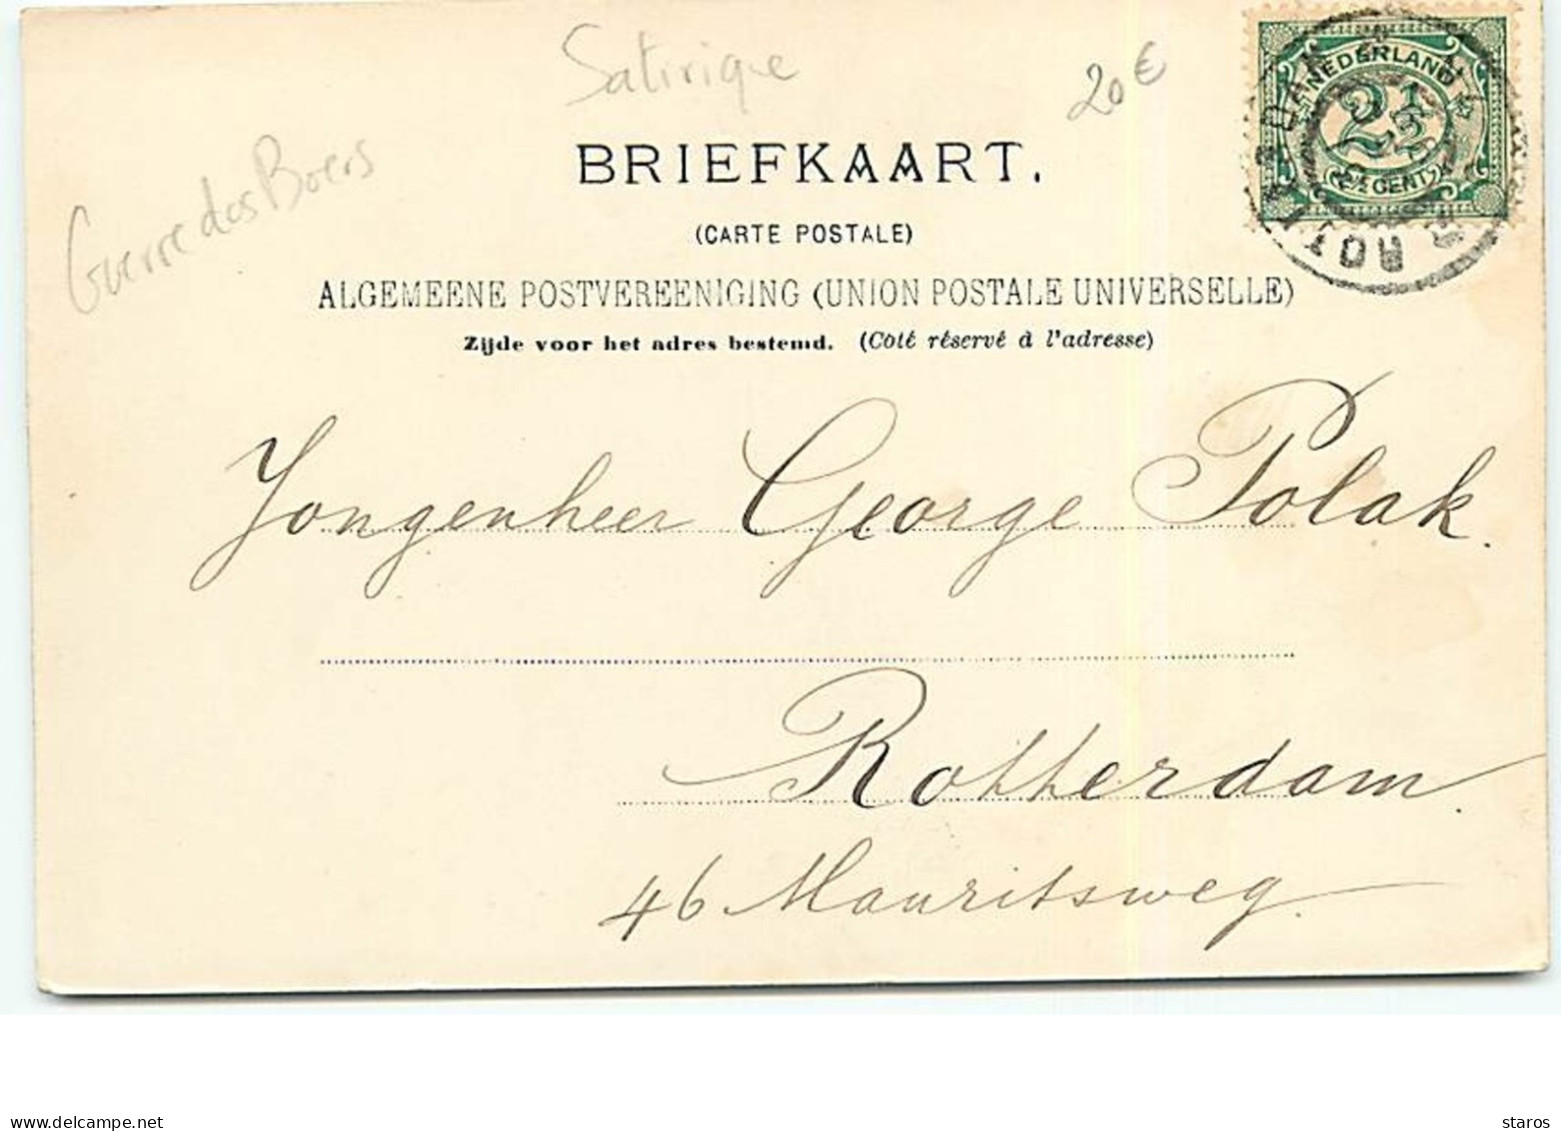 Satirique
20 €
Guerre des Boers
NEDERLAND
2½
2½ CENT
ROTTERDAM
BRIEFKAART.
(CARTE POSTALE)
ALGEMEENE POSTVEREENIGING (UNION POSTALE UNIVERSELLE)
Zijde voor het adres bestemd. (Côté réservé à l'adresse)
Jongenheer George Polak.
Rotterdam.
46 Mauritsweg.
www.delcampe.net
staros